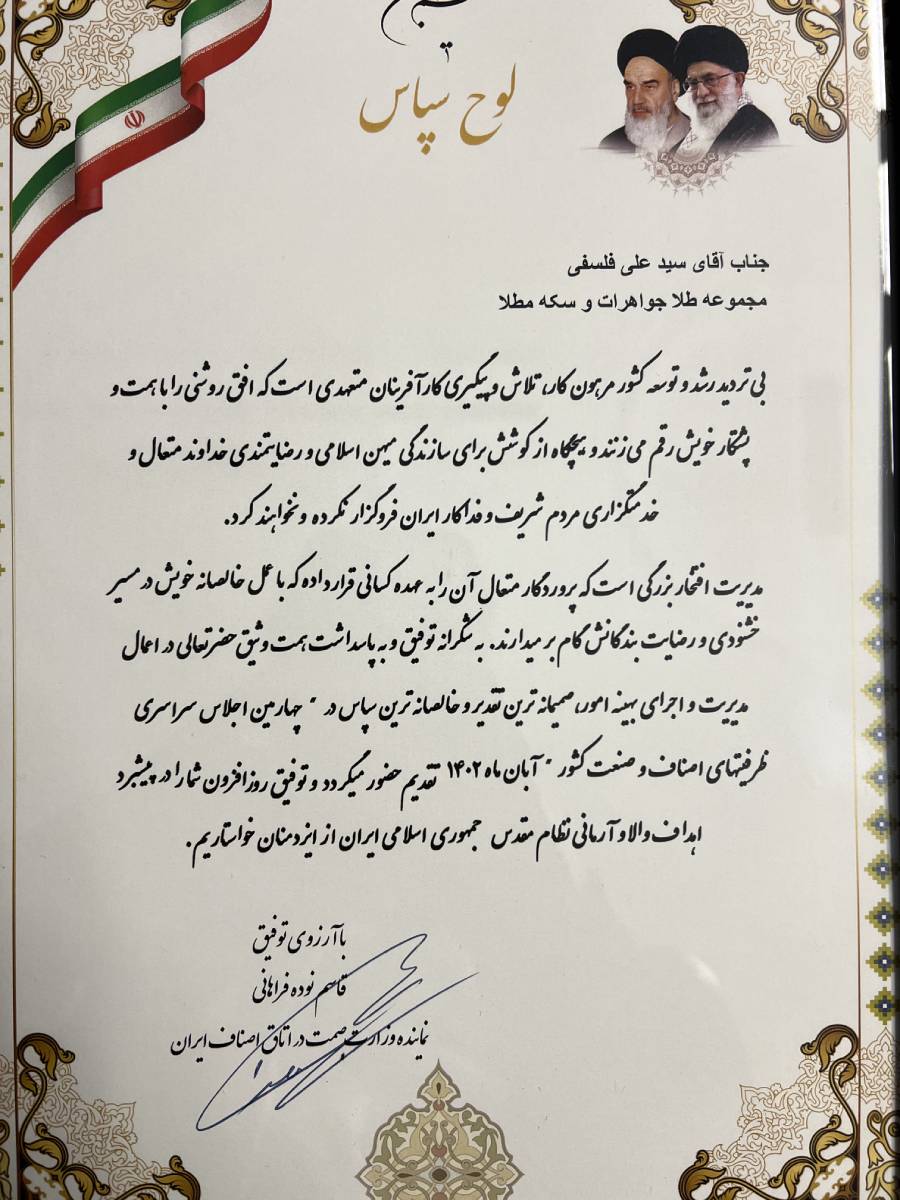 لوح سپاس
جناب آقای سید علی فلسفی
مجموعه طلا جواهرات و سکه مطلا
بی تردید رشد و توسعه کشور مرهون کار، تلاش و پیگیری کارآفرینان متعهدی است که افق روشنی را با همت و
پشتکار خویش رقم می زنند و هیچگاه از کوشش برای سازندگی میهن اسلامی و رضایتمندی خداوند متعال و
خدمتگزاری مردم شریف و فداکار ایران فروگزار نکرده و نخواهند کرد.
مدیریت افتخار بزرگی است که پروردگار متعال آن را به عهده کسانی قرار داده که با عمل خالصانه خویش در مسیر
خشنودی و رضایت بندگانش گام بر میدارند. به شکرانه توفیق و به پاسداشت همت وثیق حضرتعالی در اعمال
مدیریت و اجرای بهینه امور، صمیمانه ترین تقدیر و خالصانه ترین سپاس در " چهارمین اجلاس سراسری
ظرفیتهای اصناف و صنعت کشور " آبان ماه ۱۴۰۲ تقدیم حضور میگردد و توفیق روزافزون شما را در پیشبرد
اهداف والا و آرمانی نظام مقدس جمهوری اسلامی ایران از ایزدمنان خواستاریم.
با آرزوی توفیق
قاسم نوده فراهانی
نماینده وزارت صمت در اتاق اصناف ایران